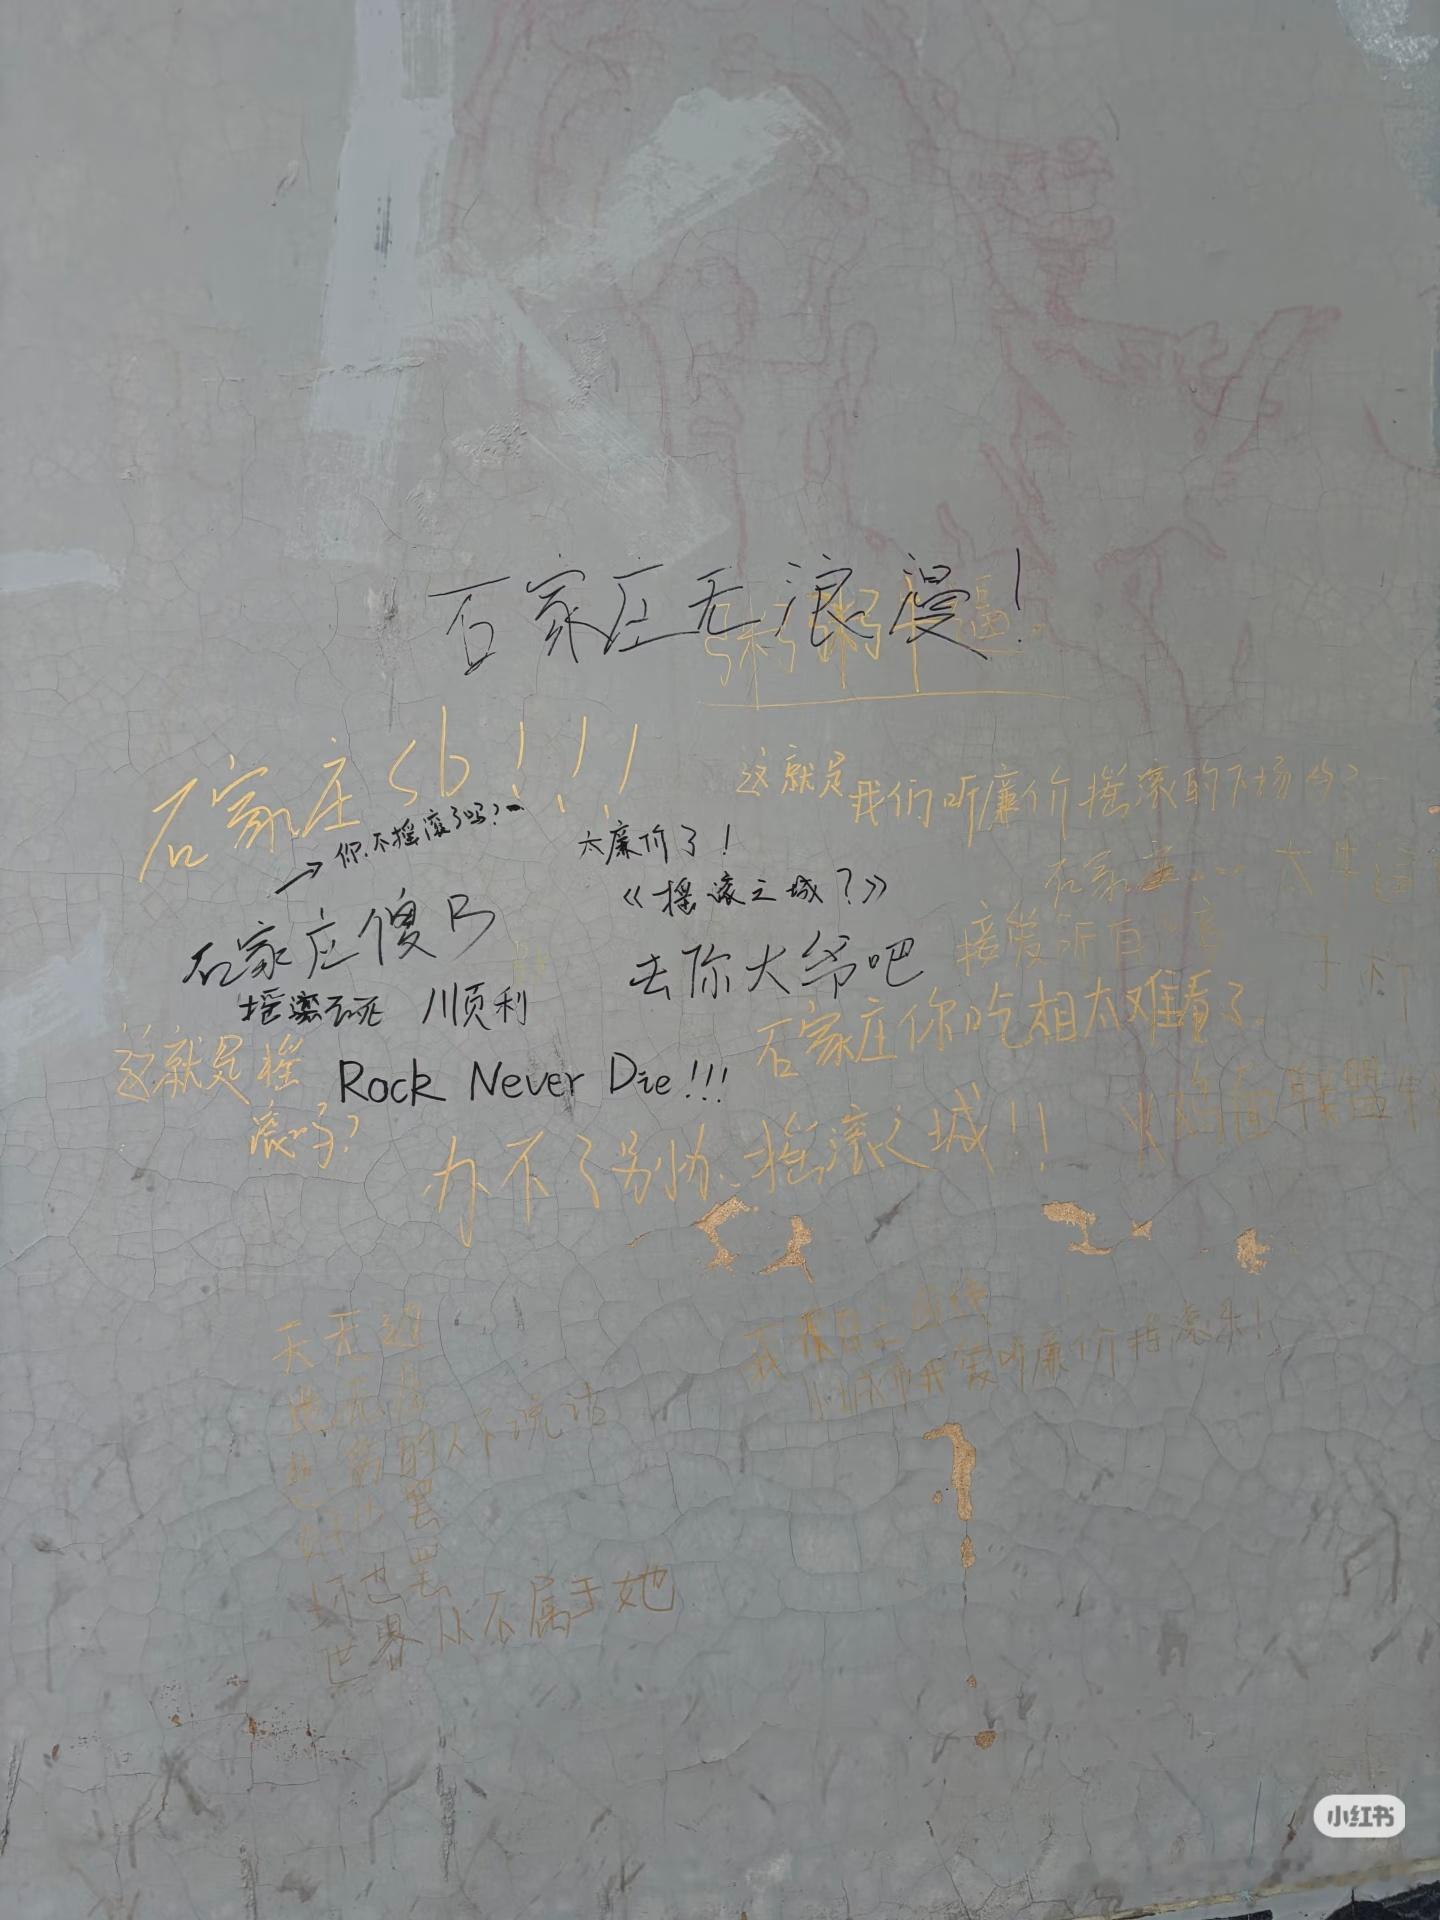 石家庄无浪漫！
粥粥牛逼。
石家庄sb！！！
这就是我们听廉价摇滚的下场吗？
→你不摇滚了吗？
太廉价了！
《摇滚之城？》
石家庄 太牛逼
石家庄傻B
去你大爷吧
接受所有
摇滚不死 顺利
石家庄你吃相太难看了
这就是摇
滚吗？
Rock Never Die!!!
办不了别办 摇滚之城！！
联盟
天无边
我来自
小城市我爱听廉价摇滚乐！
的人不说话
好也罢
坏也罢
世界从不属于她
小红书